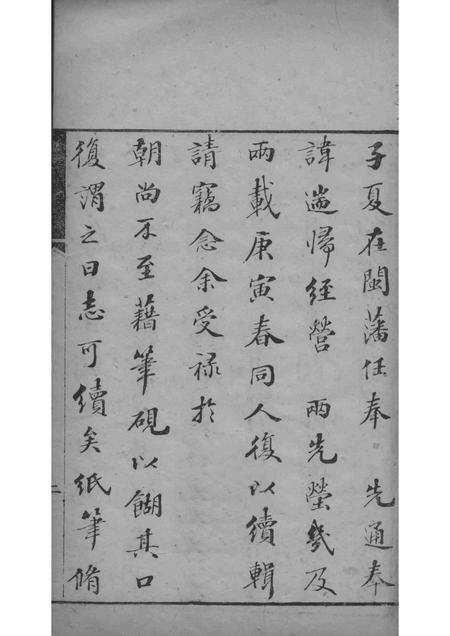 子夏在閩藩任奉 先通奉
諱遄歸經營 兩先塋幾及
兩載庚寅春同人復以續輯
請竊念余受禄於
朝尚不至藉筆硯以餬其口
復謂之曰志可續矣紙筆脩
二